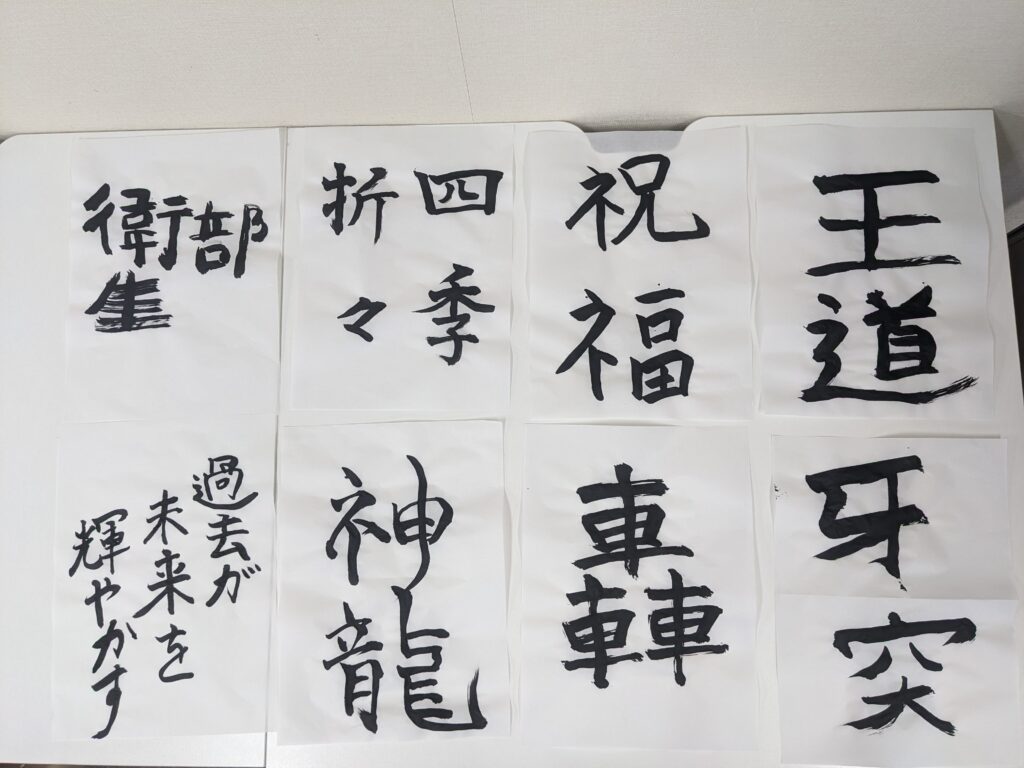 王道
祝福
四季
折々
衛生部
牙突
轟
神龍
過去が
未来を
輝やかす